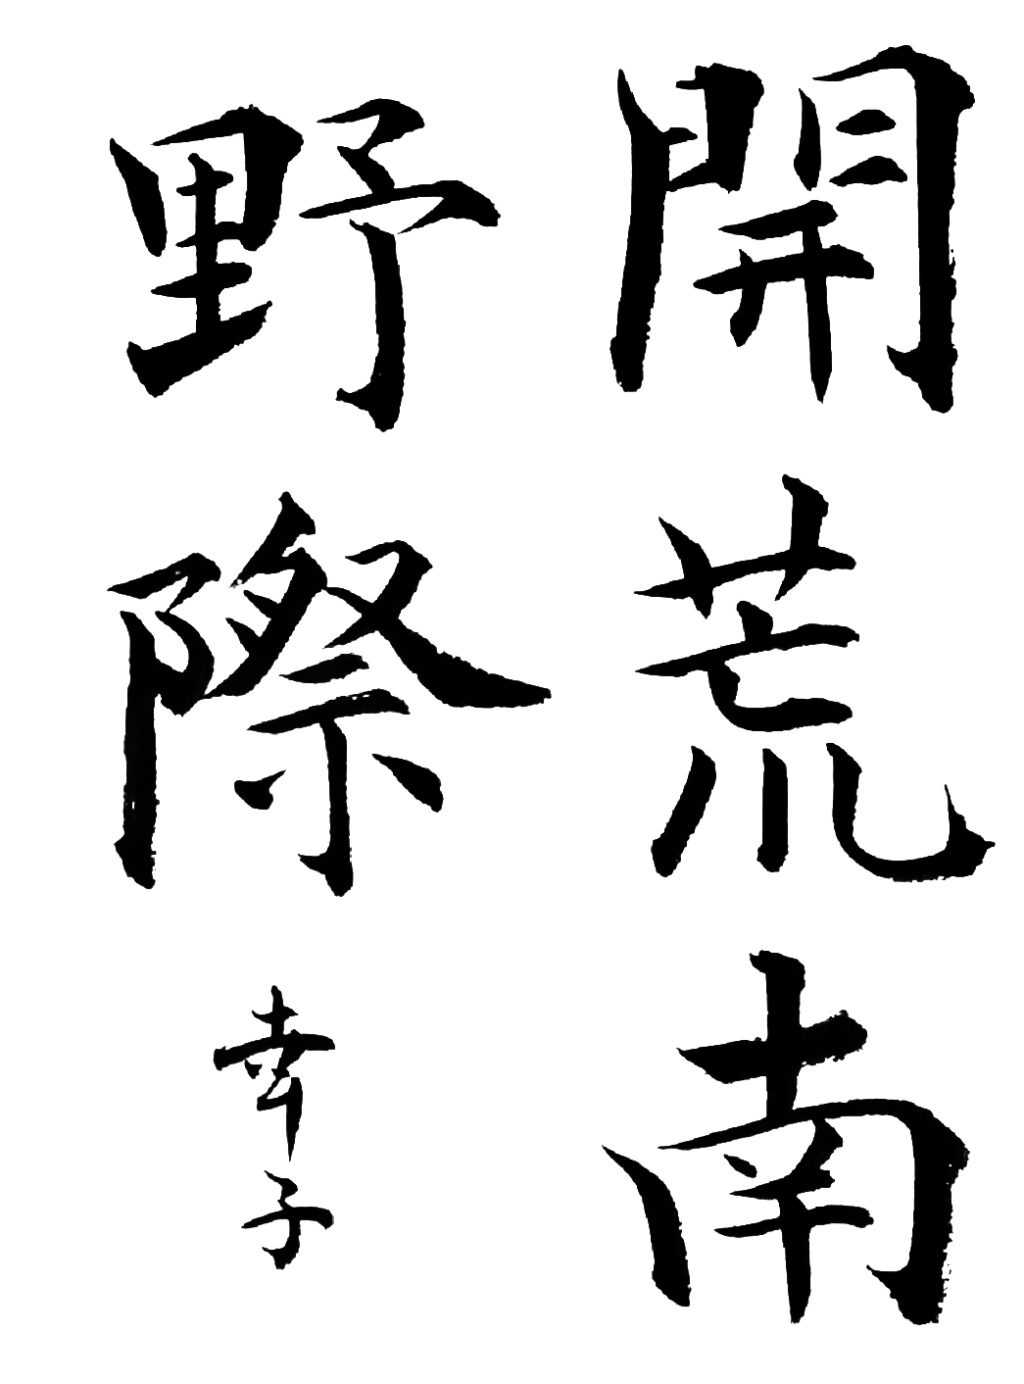 開荒南
野際
幸子